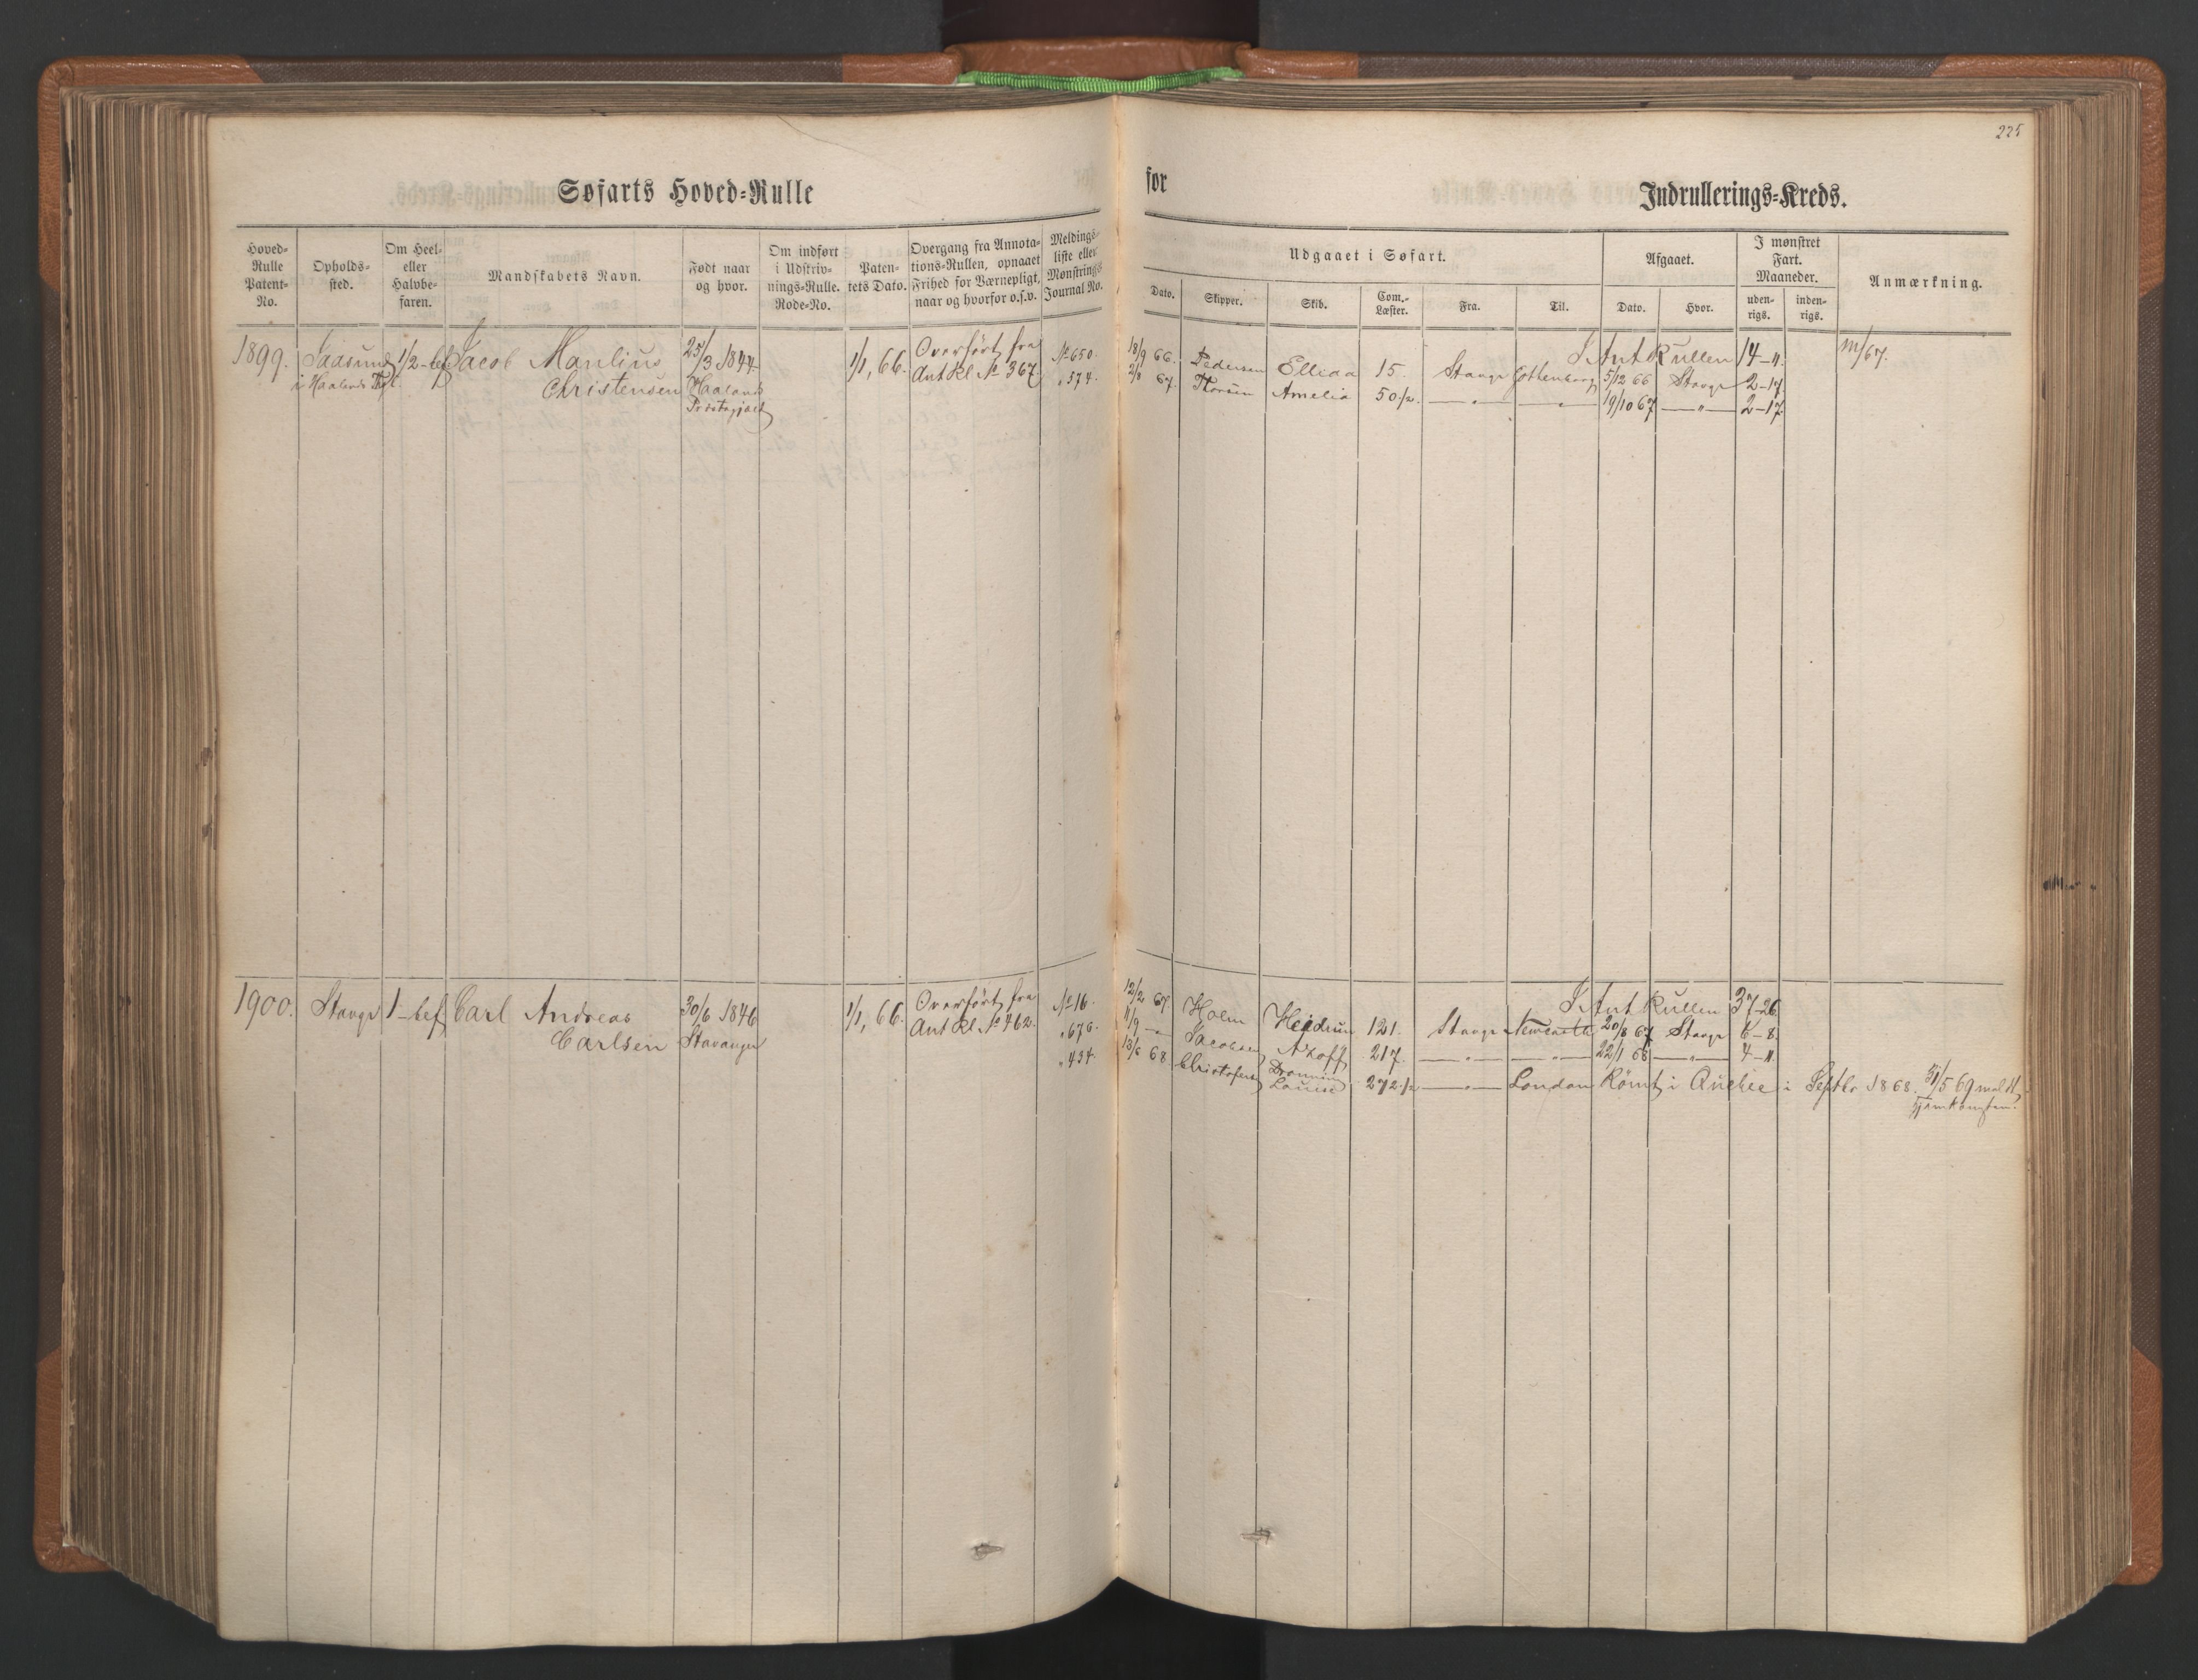 225
Søfarts Hoved-Rulle for Indrullerings-Kreds.
Hoved-Rulle Patent-No.
Opholds-sted.
Om Heel- eller Halvbe-faren.
Mandskabets Navn.
Født naar og hvor.
Om indført i Udskriv-nings-Rulle. Rode-No.
Paten-tets Dato.
Overgang fra Annota-tions-Rullen, opnaaet Frihed for Værnepligt, naar og hvorfor o.s.v.
Meldings-liste eller Mønstrings Journal No.
Udgaaet i Søfart.
Dato.
Skipper.
Skib.
Com.-Læster.
Fra.
Til.
Afgaaet.
Dato.
Hvor.
I mønstret Fart. Maaneder.
uden-rigs.
inden-rigs.
Anmærkning.
1899. 1/2-bef Jacob Manlius 25/3 1844 1/1, 66. Overført fra No 650. 18/9 66. Pedersen Ellida 15. Stavgr Gothenborg I Ant Rullen 14-11. m/67.
i Haalands Christensen Haalands Ant Rl No 367. " 574. 2/8 67. Amelia 50 1/2. — " — — " — 5/12 66 Stavgr 2-17
Præstegjæld 19/10 67 — " — 2-17
1900. Stavgr 1-bef Carl Andreas 30/6 1846 1/1, 66. Overført fra No 16. 12/2 67 Holm Heidrun 121. Stavgr Newcastle I Ant Rullen 37-26
Carlsen Stavanger Ant Rl No 462. " 676. 11/9 — Jacobsen Azoff 217. — " — — " — 20/8 67 Stavgr 6-8.
" 434. 13/6 68 Christofersen Dronning Louise 272 1/2 — " — London 22/1 68 — " — 4-11.
Rømt i Quebec i Septbr 1868. 31/5 69 meldt
Hjemkomsten.